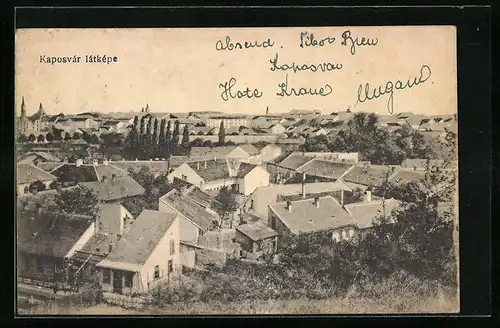 Kaposvár látképe
Absend. Tibor
Kaposvar
Hotel Krone
Ungarn